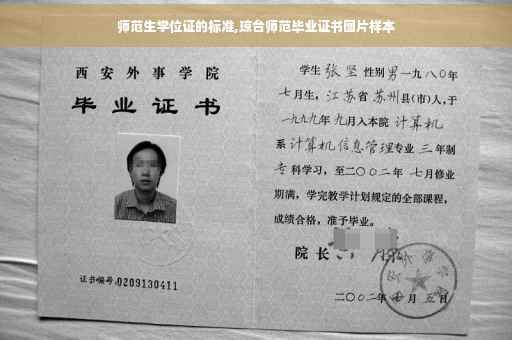 师范生学位证的标准,琼台师范毕业证书图片样本
西安外事学院
毕业证书
证书编号:0209130411
学生 张坚 性别 男 一九八〇年
七月生，江苏省 苏州县(市)人,于
一九九九年 九月入本院 计算机
系 计算机信息管理 专业 三 年制
专科学习，至二〇〇二年 七月修业
期满，学完教学计划规定的全部课程，
成绩合格，准予毕业。
院长
二〇〇二年 月 五日